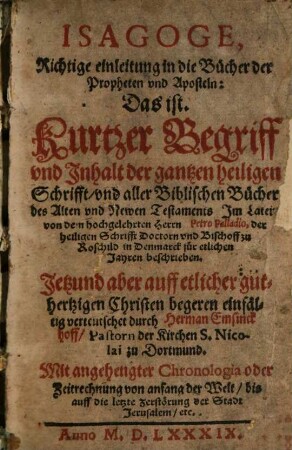 ISAGOGE,
Richtige einleitung in die Bücher der
Propheten vnd Aposteln:
Das ist.
Kurtzer Begriff
vnd Inhalt der gantzen heiligen
Schrifft/vnd aller Biblischen Bücher
des Alten vnd Newen Testaments Im Latein
von dem hochgelehrten Herrn Petro Palladio, der
heiligen Schrifft Doctorn vnd Bischoff zu
Roschild in Dennmarck für etlichen
Jahren beschrieben.
Jetzund aber auff etlicher güt-
hertzigen Christen begeren einfäl-
tig verteutschet durch Herman Emsinck
hoff/ Pastorn der Kirchen S. Nico-
lai zu Dortmund.
Mit angehengter Chronologia oder
Zeitrechnung von anfang der Welt/ bis
auff die letzte zerstörung der Stadt
Jerusalem/ etc.
Anno M. D. LXXXIX.